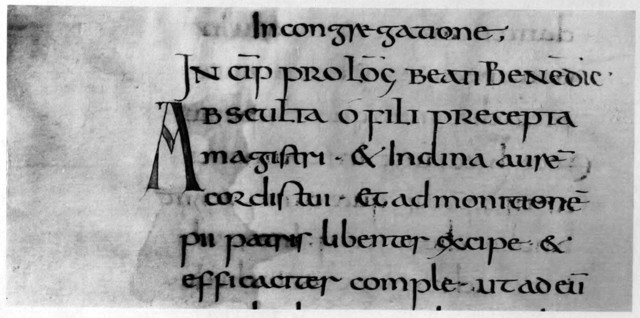 In congregatione;
IN CIP̄ PROLŌG BEATI BENEDIC·
ABSCULTA O FILI PRECEPTA
magistri · & Inclina aurē
cordis tui · Et ad monitionē
pii patris libenter excipe · &
efficaciter comple · ut ad eū